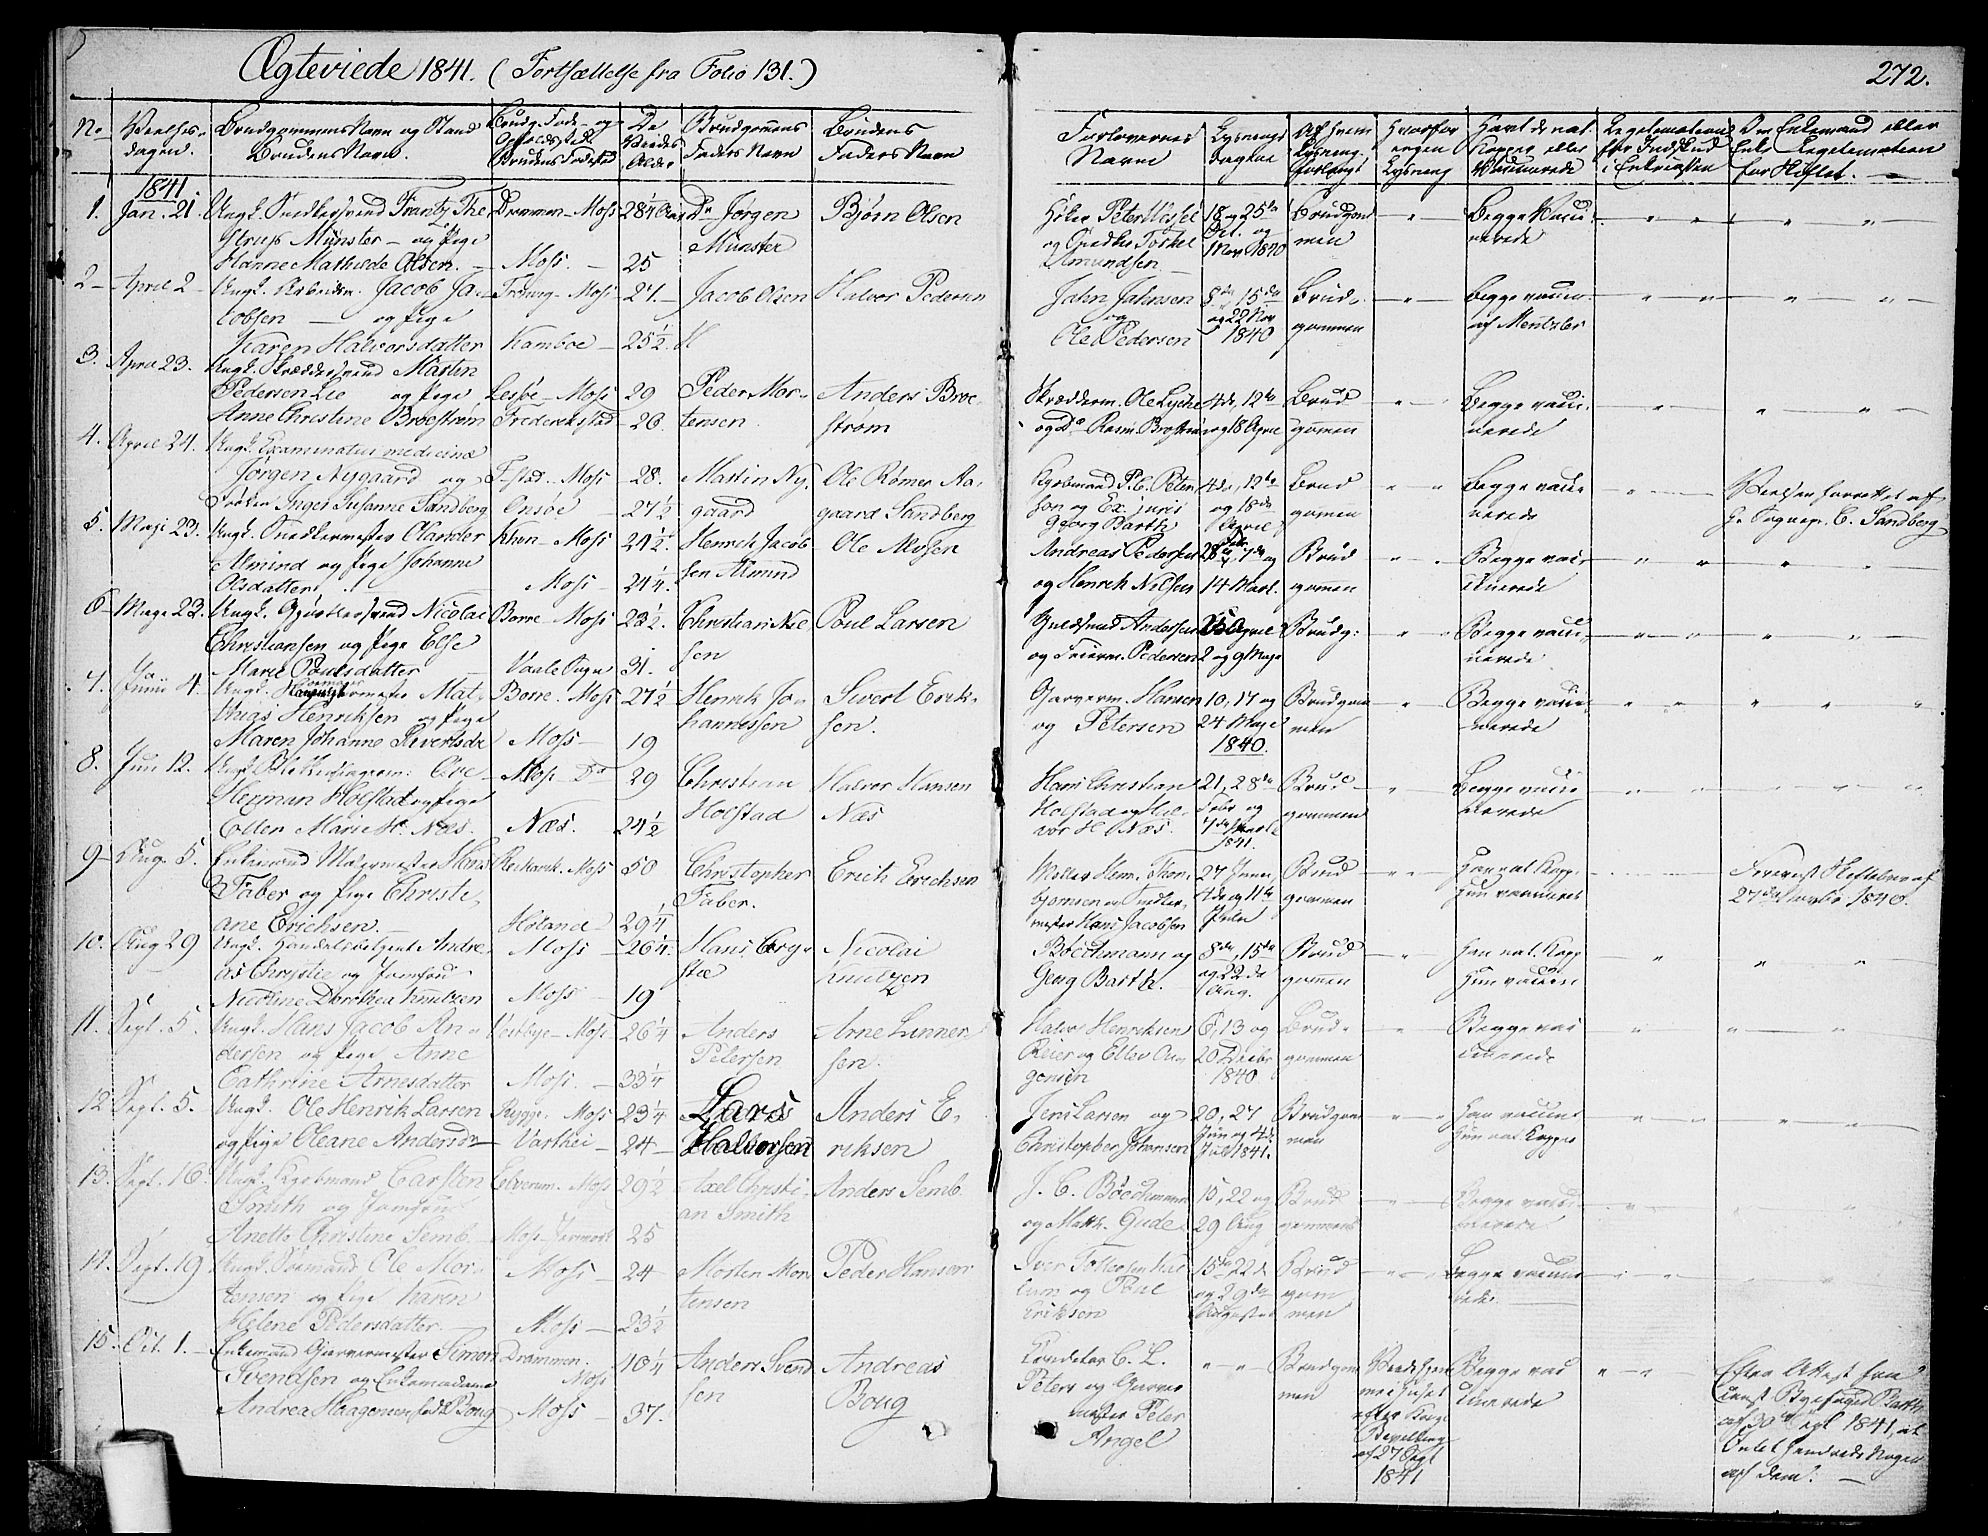 Ægteviede 1841. (Fortsættelse fra Folio 131.)
272.
No
Vielses-
dagen.
Brudgommens Navn og Stand
Brudens Navn.
Brudg. Føde- og
Opholdssted
Brudens Fødested
De
Viedes
Alder
Brudgommens
Faders Navn
Brudens
Faders Navn
Forlovernes
Navne
Lysnings
dagene
Af hvem
Lysning
forlangt
Hvorfor
ingen
Lysning
Havt de nat.
Kopper eller
Vaccinerede
Legitimation
for Indskud
i Enkecassen
Om Enkemand eller
Enke Legitimation
for Skiftet.
1841
1. Jan. 21. Ungk. Snedkersvend Frantz The
strup Münster – og Pige
Hanne Mathilde Olsen.
Drammen – Moss
Moss. –
28¼ Aar
25
Do Jørgen
Münster
Bjørn Olsen
Peter
og Snedker Torkel
Amundsen
18 og 25de
Oct. og
1 Nov 1840
Brudgom
men
Begge Vacci
nerede
2 – April 2 – Ungk. Arbeidsm. Jacob Ja-
cobsen – og Pige
Karen Halvorsdatter
Moss
Kamboe –
27 –
25½
Jacob Olsen
Halvor Pedersen
Jahn Jahnsen
og
Ole Pedersen
8de 15de
og 22 Nov
1840
Brud-
gommen
Begge vaccin.
af Mentzler
3. April 23. Ungk. Skræddersvend Martin
Pedersen Lie og Pige
Anne Christine Broestrøm
Lesøe – Moss
Frederikstad
29
26
Peder Mor-
tensen.
Anders Broe-
strøm
Skrædderm. Ole Lyche
og Do Rasm. Brostrøm
4de, 12te
og 18 April
Brud
gommen
Begge vacci
nerede
4. April 24. Ungk. Examinatus medicinæ
Jørgen Nygaard og
Frøken Inger Susanne Sandberg
F.stad – Moss
Onsøe –
28.
27½
Martin Ny-
gaard
Ole Rømer Aa-
gaard Sandberg
Kjøbmand P. C. Peter
sen og Ex. juris
Georg Barth
4de, 12te
og 18de
April
Brud
gomen
Begge vacci
nerede
Vielsen forrettet af
Hr. Sognep. C. Sandberg
5. Maji 23. Ungk. Snedkermester Olander
Almind og Pige Johanne
Olsdatter
Moss
Moss
24½
24¼
Henrik Jacob
sen Almind
Ole Moſsen
Andreas Pedersen
og Henrik Nielsen
28 Febr, 7de og
14 Mart.
Brud
gommen
Begge vac-
cinerede
6 – Maji 23. Ungk. Nicolai
Christiansen og Pige Else
Marie Poulsdatter
Borre – Moss
Vaale Sogn
23½
31.
Christian Niel
sen
Poul Larsen
Andersen
og Feierm. Pedersen
25 April
2 og 9 Maji
Brudg:
Begge vacci-
nerede
7. Junii 4. Ungk. Mat-
thias Henriksen og Pige
Maren Johanne Sivertsdr
Borre – Moss
Moss –
27½
19
Henrik Jo-
hannessen
Sivert Erik-
sen.
Garverm. Hansen
og Petersen
10, 17 og
24 Maji
1840.
Brudgom
men
Begge vacci-
nerede
8. Juni 12. Ungk. Ove
Herman Holstad og Pige
Ellen Marie H. Næs.
Moss – Do
Næs.
29
24½
Christian
Holstad
Halvor Hansen
Næs
Hans Christian
Holstad og Hal-
vor H. Næs.
21, 28de
Febr og
7de Marti
1841
Brud
gommen
Begge vacci
nerede
9 – Aug. 5. Enkemand Malermester Hans
Faber og Pige Christi-
ane Erichsen.
Moss
Høland –
50
29¼
Christopher
Faber.
Erich Erichsen
Møller Hem. Thor-
bjørnsen og Snedker-
mester Hans Jacobsen
27 Juni,
4de og 11te
Julii
Brud
gommen
Han nat. Kopp.
Hun vaccineret
27de Novbr 1840.
10. Aug 29 Ungk. Handelsbetjent Andre
as Chrystie og Jomfrue
Nicoline Dorothea Knutzen
Moss
Moss
26¼
19
Hans Chry-
stie
Nicolai
Knutzen
Böeckmann og
Georg Barth.
8de, 15de
og 22de
Aug.
Brud
gommen
Han nat. Kopp
Hun vaccin
11. Sept. 5. Ungk. Hans Jacob An-
dersen og Pige Anne
Cathrine Arnesdatter
Vestbye – Moss
Moss. –
26¼
33¼
Anders
Petersen
Arne Gunner
sen.
Halvor Henriksen
Reier og Ellev Aa-
gensen
6, 13 og
20 Decbr
1840
Brud-
gommen
Begge vac
cinerede
12 Sept. 5. Ungk. Ole Henrik Larsen
og Pige Oleane Andersdr
Rygge. Moss
Varthei –
23¼
24 –
Lars
Halvorsen
Anders E-
riksen
Jens Larsen og
Christopher Johansen
20, 27
Jun og 4de
Jul 1841.
Brudgom
men
Han vaccint
Hun nat. Kopper
13. Sept. 16. Ungk. Kjøbmand Carsten
Smith og Jomfrue
Anette Christine Semb –
Elverum. Moss
Moss
29½
25
Axel Christi-
an Smith
Anders Semb.
J. C. Böeckmann
og Matth. Gude
15, 22 og
29 Aug
Brud
gommen
Begge vacci-
nerede
14. Sept. 19 Ungk. Sømand Ole Mor-
tensen og Pige Karen
Helene Pedersdatter –
Moss
Moss –
24
23½
Morten Mor
tensen
Peder Hansen
Iver
og Poul
Eriksen
15de 22de
og 29de
Augusti
Brud
gom
men
Begge vaccine
rede
15. Oct. 1. – Enkemand Garvermester Simon
Svendsen og Enkemadame
Andrea Haagensen født Boug
Drammen.
Moss
Moss –
40¼
37.
Anders Svend
sen
Andreas
Boug
Conditor C. L.
Peters og Garver
mester Peter
Angel
Brudgom
men
Viede hjem
me i Huset
efter Kongl
Bevilling
af 27 Sept
1841
Begge vac
cinerede
Efter Attest fra
const. Byefoged Barth
af 30te Sept 1841, at
Intet hindrede Nogen
af dem. –